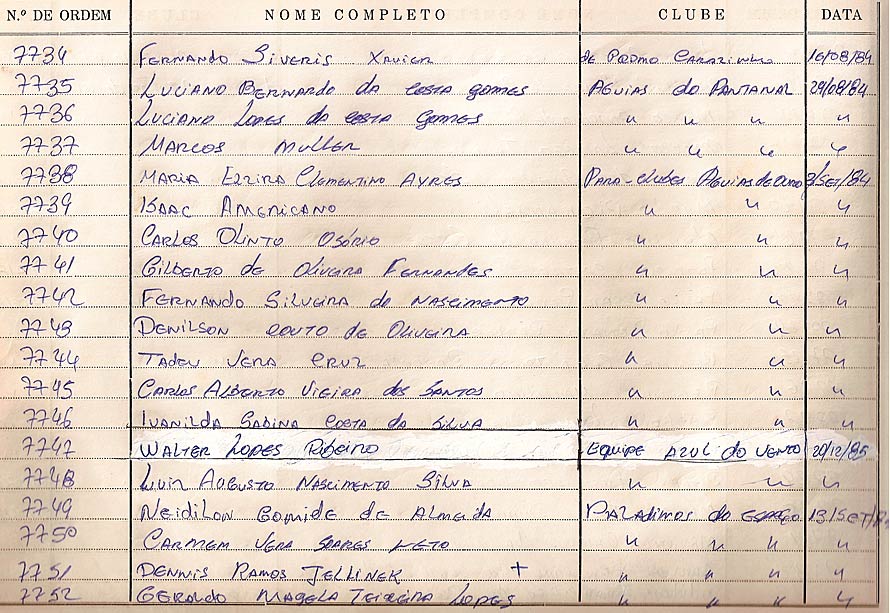 N.º DE ORDEM NOME COMPLETO CLUBE DATA
7734 FERNANDO SIVERIS XAVIER DE PROMO CARAZINHO 16/08/84
7735 LUCIANO BERNARDO da costa gomes AGUIAS do PANTANAL 29/08/84
7736 LUCIANO LOPES da costa Gomes " " " "
7737 MARCOS MULLER " " " "
7738 MARIA ELZIRA CLEMENTINO AYRES PARA-CLUBES AGUIAS de OURO /SET/84
7739 ISAAC AMERICANO " " "
7740 CARLOS OLINTO OSÓRIO " " "
7741 GILBERTO de OLIVEIRA FERNANDES " " "
7742 FERNANDO SILVEIRA do NASCIMENTO " " "
7743 DENILSON COUTO de OLIVEIRA " " "
7744 TADEU VERA CRUZ " " "
7745 CARLOS ALBERTO VIEIRA dos SANTOS " " "
7746 IVANILDA SABINA COSTA da SILVA " " "
7747 WALTER LOPES RIBEIRO EQUIPE AZUL do VENTO 20/12/85
7748 LUIZ AUGUSTO NASCIMENTO SILVA " " "
7749 NEIDILON GOMIDE de ALMEIDA do ESPAÇO 13/SET/
7750 CARMEM VERA SOARES NETO " " " "
7751 DENNIS RAMOS JELLINEK + " " " "
7752 GERALDO MAGELA TEIXEIRA LOPES " " " "